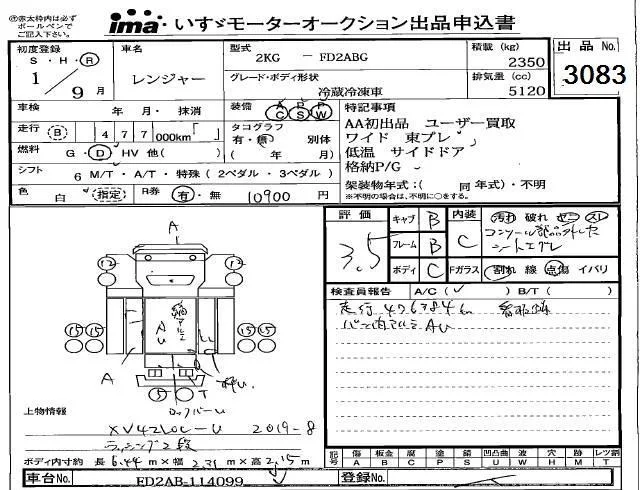 赤太枠内は必ず
ボールペンで
ご記入下さい。
ima いすゞモーターオークション出品申込書
初度登録
S・H・R
1/9月
車名
レンジャー
型式
2KG － FD2ABG
積載(kg)
2350
出品No.
3083
グレード・ボディ形状
冷蔵冷凍車
排気量(cc)
5120
車検
年 月・ 抹消
装備 A P P
C S W
特記事項
AA初出品 ユーザー買取
ワイド 東プレ
低温 サイドドア
格納P/G
走行 B 477 000km「 」
タコグラフ
有・無 別体
( 年 月)
燃料 G・D・HV 他( )
シフト 6 M/T・A/T・特殊(2ペダル・3ペダル)
架装物年式:( 同 年式)・不明
※不明の場合は、不明に○をする。
色 白 指定 R券 有・無 10900 円
評価
3.5
キャブ B
フレーム B
ボディ C
内装 C
汚れ 破れ セコ スレ
コンソール部品外した
シートエグレ
Fガラス 割れ 線 点傷 イバリ
検査員報告 A/C(✓) B/T( )
走行476384km
バン内アルミ AU
A
12 12
15 15 15 15
A U
A
5 T
ロックバーU
上物情報
XV42LOC-U 2019-8
ラッシング2段
ボディ内寸約 長 6.44 m×幅 2.31 m×高 2.15 m
記号 傷 板金 腐 塗 錆 凹凸曲 凹 波 穴 跡 レツ割
A B C P S U W H M T
車台No. FD2AB-114099
登録No.